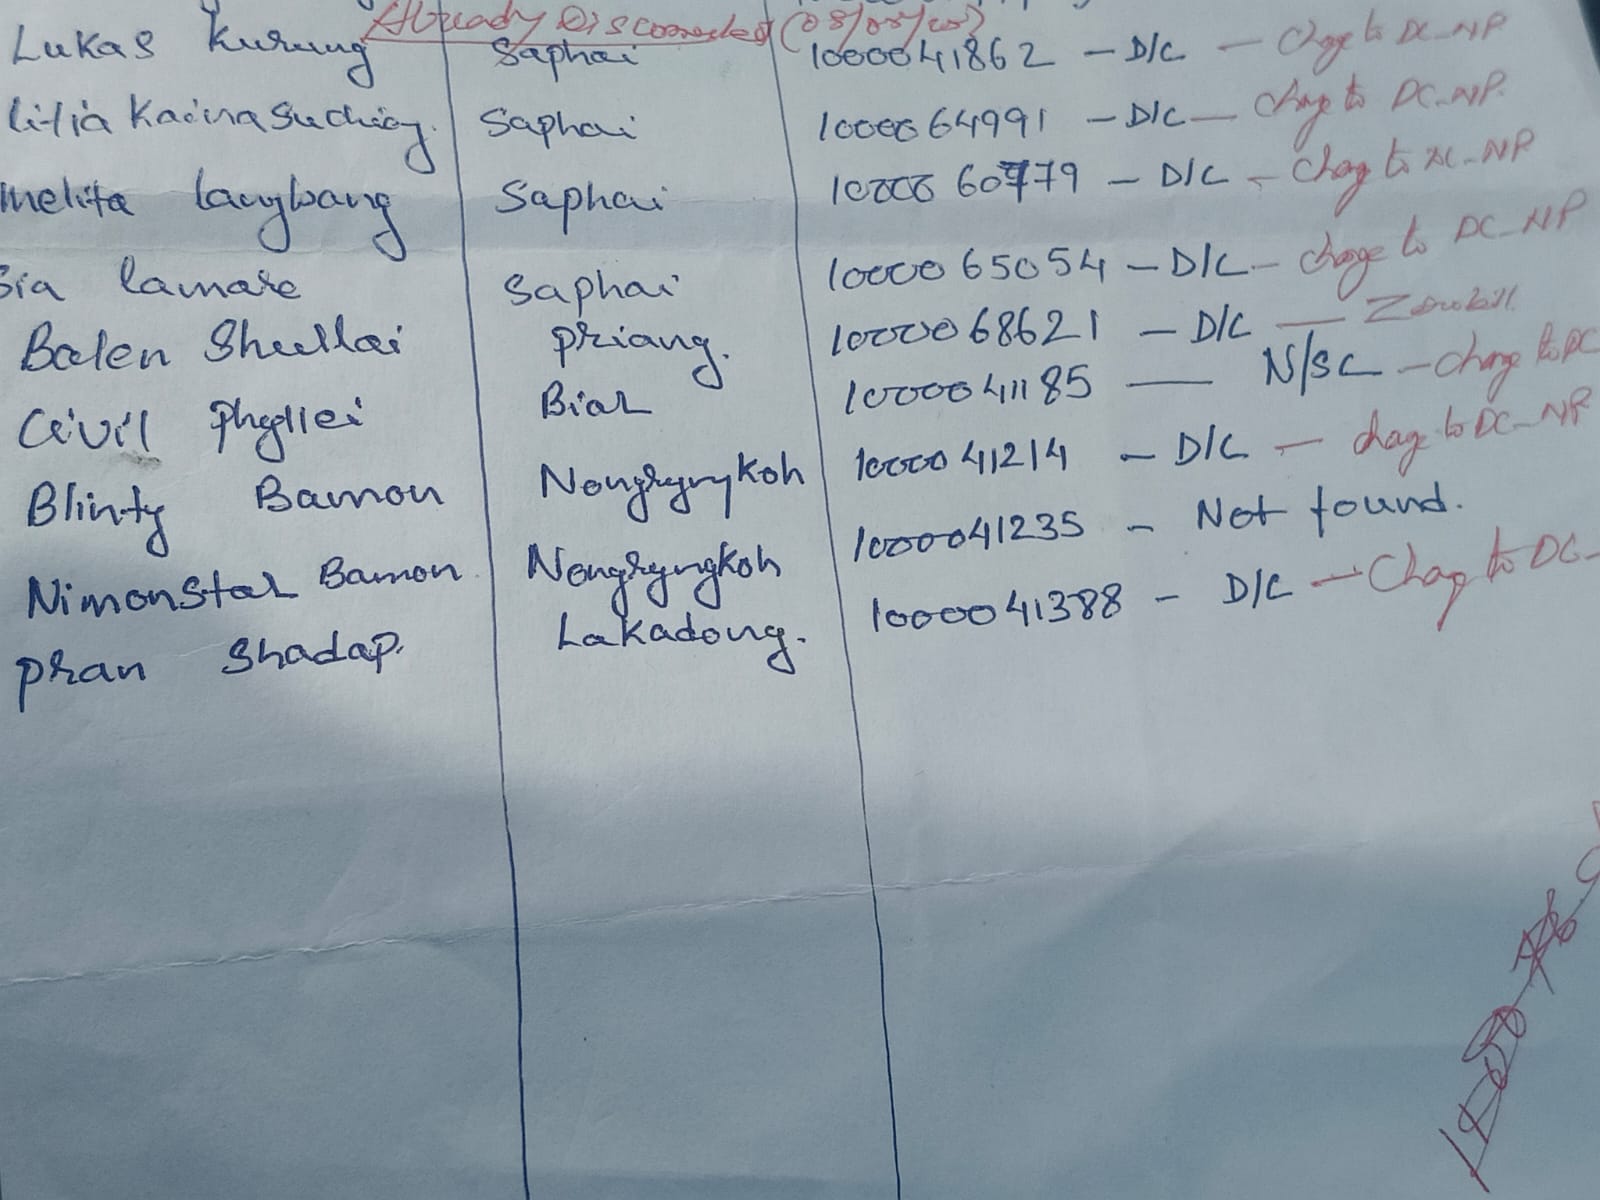 Already Disconnected (08/05/20)
Lukas Kurung Saphai 1000041862 - D/C - Chage to DC-NP
litia Kaina Suchiang. Saphai 1000064991 - D/C - Chage to DC-NP.
melita langbang Saphai 1000060779 - D/C - Chag to DC-NP
Sia lamare Saphai 1000065054 - D/C - Chage to DC-NP
Balen Shullai Priang. 1000068621 - D/C -
Civil Phyllei Biar 1000041185 - N/SC - Chage to DC
Blinty Bamon Nongryngkoh 1000041214 - D/C - chag to DC-NP
Nimonstar Bamon Nongryngkoh 1000041235 - Not found.
Pran Shadap. Lakadong. 1000041388 - D/C - Chag to DC-